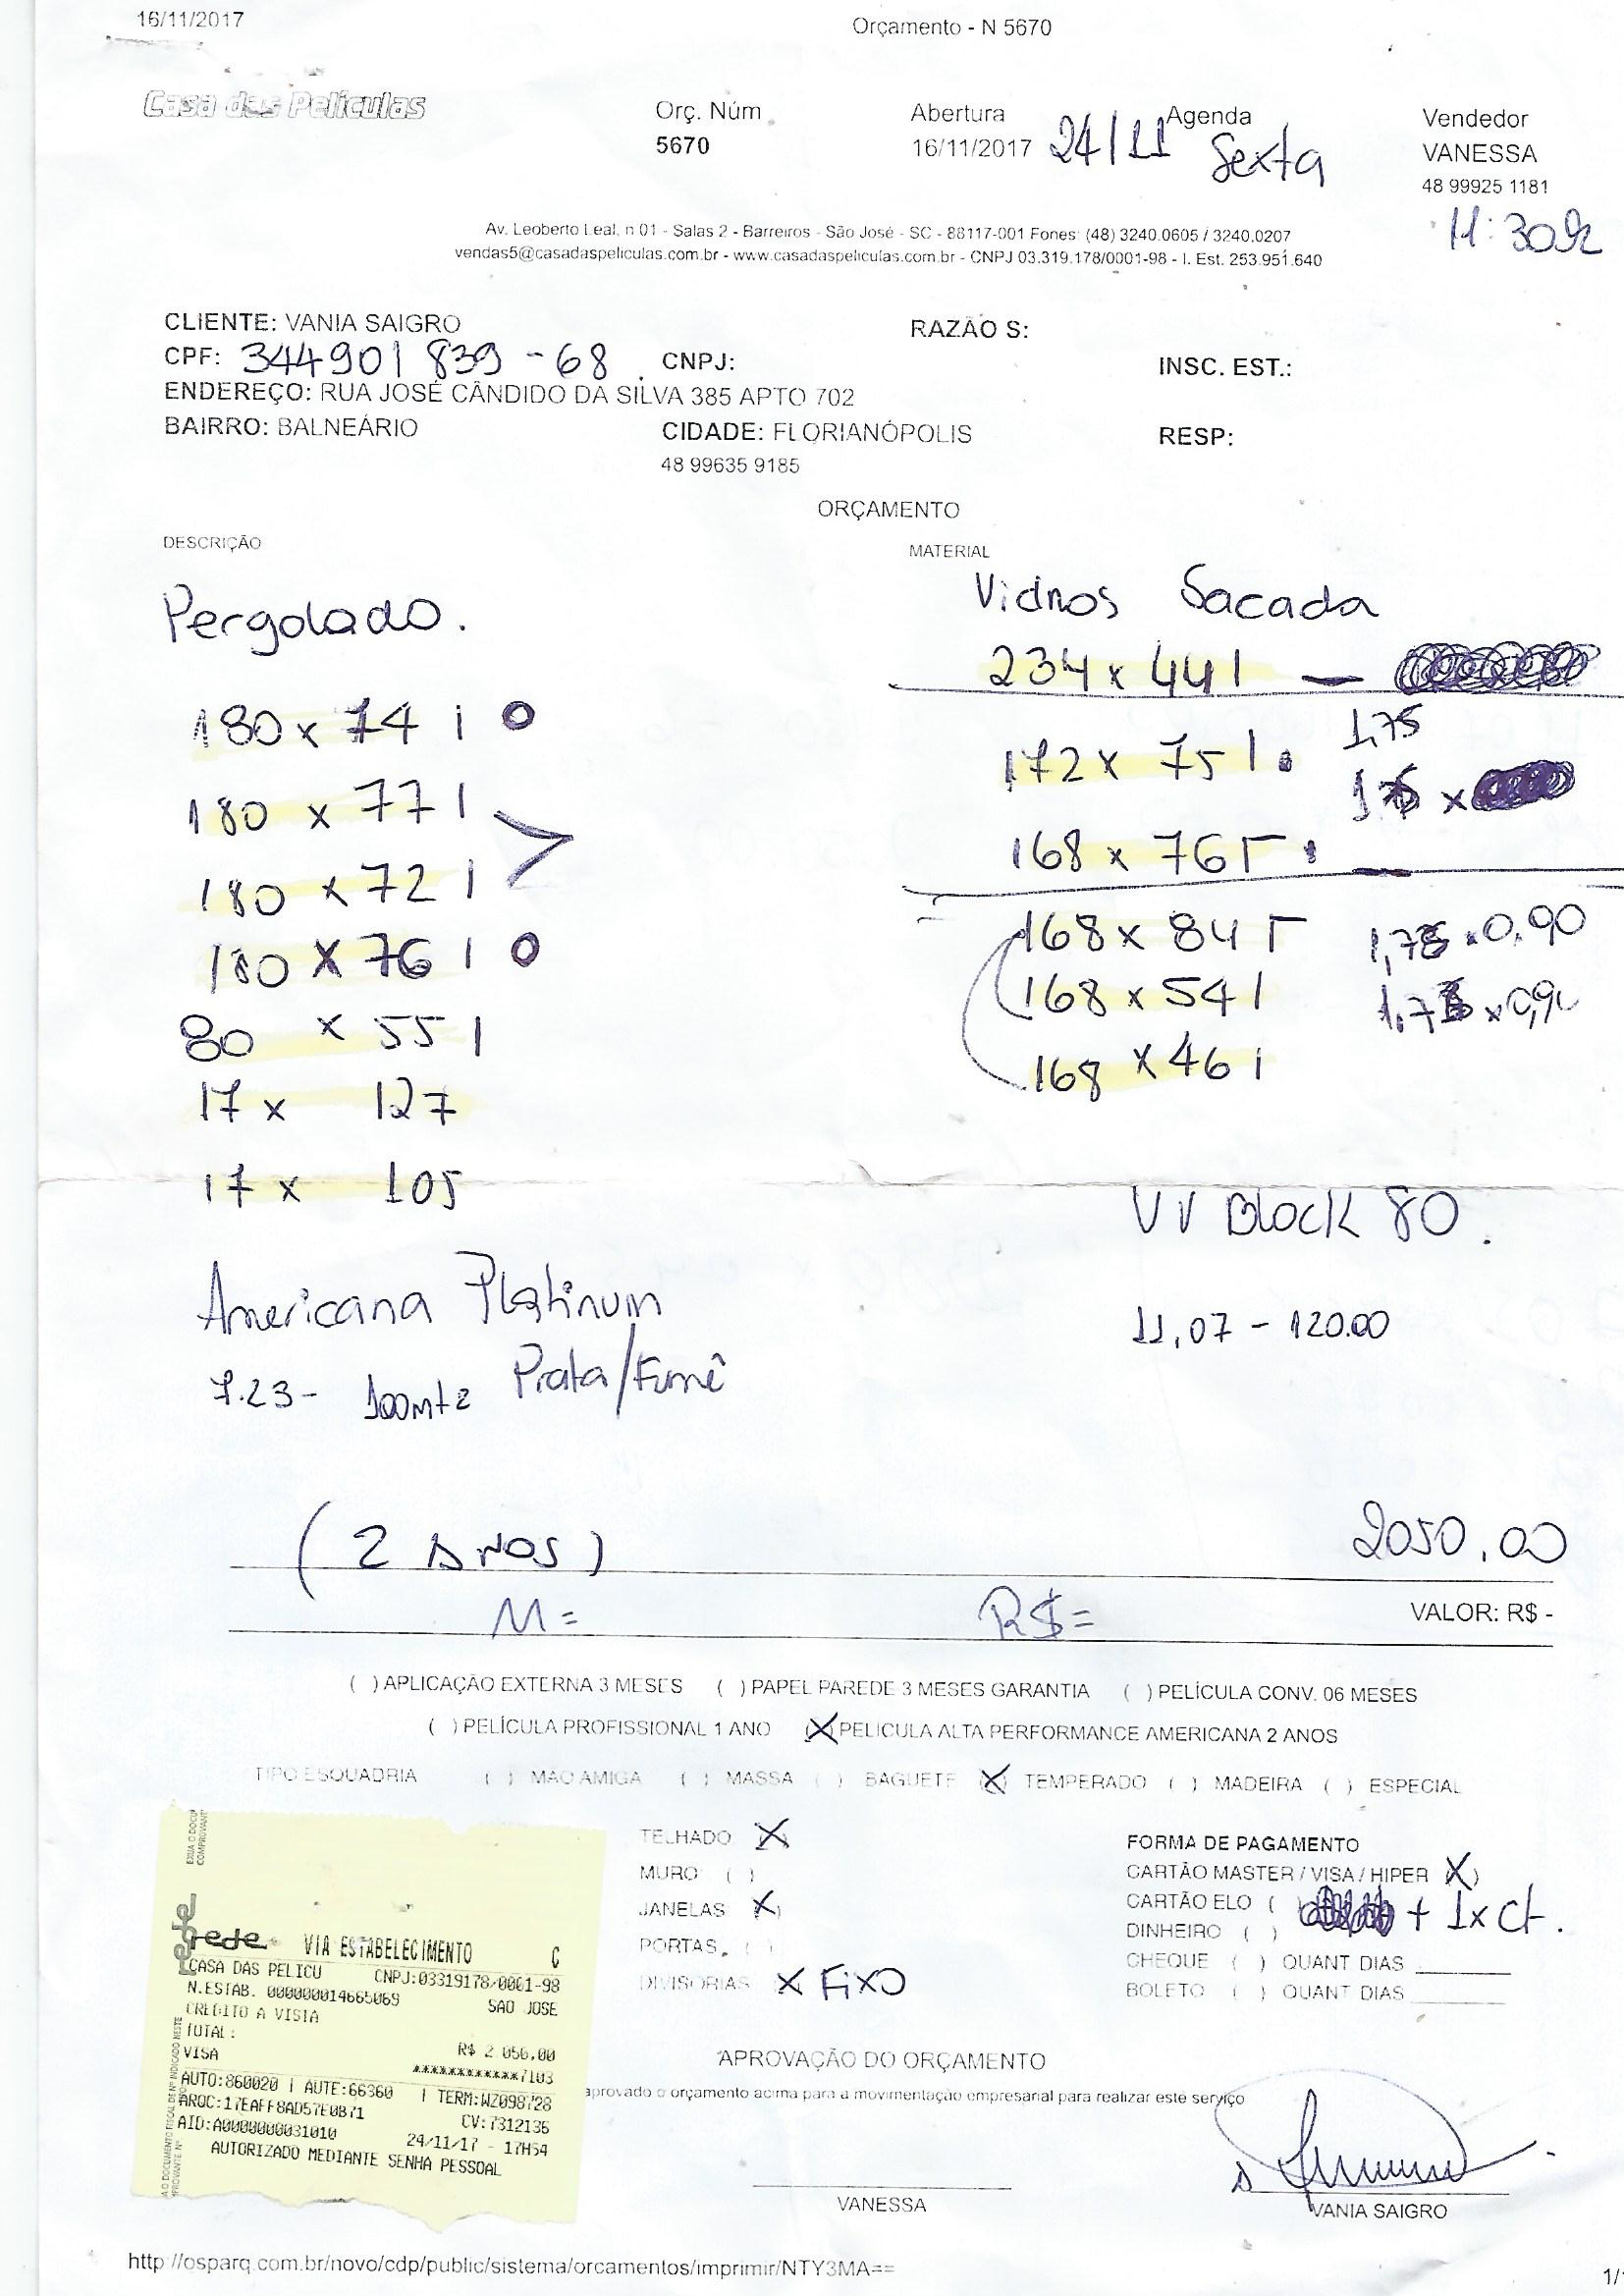 16/11/2017
Orçamento - N 5670
Casa das Películas
Orç. Núm
5670
Abertura
16/11/2017
24/11
Agenda
Sexta
Vendedor
VANESSA
48 99925 1181
11:30
Av. Leoberto Leal, n 01 - Salas 2 - Barreiros - São José - SC - 88117-001 Fones: (48) 3240.0605 / 3240.0207
vendas5@casadaspeliculas.com.br - www.casadaspeliculas.com.br - CNPJ 03.319.178/0001-98 - I. Est. 253.951.640
CLIENTE: VANIA SAIGRO
RAZÃO S:
CPF: 344901839-68
CNPJ:
INSC. EST.:
ENDEREÇO: RUA JOSÉ CÂNDIDO DA SILVA 385 APTO 702
BAIRRO: BALNEÁRIO
CIDADE: FLORIANÓPOLIS
RESP:
48 99635 9185
ORÇAMENTO
DESCRIÇÃO
Pergolado.
180 x 74 1
180 x 77 1
180 x 72 1
180 x 76 1
80 x 55 1
17 x 127
17 x 105
Americana Platinum
Prata/Fumê
7.23 -
MATERIAL
Vidros Sacada
234 x 44 1
172 x 75 1
1,75
168 x 76
168 x 84
x 0,90
168 x 54 1
168 x 46 1
UV Block 80.
11,07 - 120.00
(2 ANOS)
2050,00
M =
R$ =
VALOR: R$ -
( ) APLICAÇÃO EXTERNA 3 MESES ( ) PAPEL PAREDE 3 MESES GARANTIA ( ) PELÍCULA CONV. 06 MESES
( ) PELÍCULA PROFISSIONAL 1 ANO (X) PELICULA ALTA PERFORMANCE AMERICANA 2 ANOS
TIPO ESQUADRIA ( ) MAO AMIGA ( ) MASSA ( ) BAGUETE (X) TEMPERADO ( ) MADEIRA ( ) ESPECIAL
TELHADO X
MURO ( )
JANELAS X
PORTAS ( )
DIVISÓRIAS X FIXO
FORMA DE PAGAMENTO
CARTÃO MASTER / VISA / HIPER (X)
CARTÃO ELO ( )
+ 1x Ct.
DINHEIRO ( )
CHEQUE ( ) QUANT DIAS
BOLETO ( ) QUANT DIAS
rede
VIA ESTABELECIMENTO C
CASA DAS PELICU CNPJ:03319178/0001-98
N.ESTAB. 000000014665069 SAO JOSE
CREDITO A VISTA
TOTAL:
R$ 2.050,00
VISA
************7103
AUTO:860020 | AUTE:66360 | TERM:WZ098728
ARQC:17EAFF8AD57E0B71 CV:7312135
AID:A0000000031010 24/11/17 - 17H54
AUTORIZADO MEDIANTE SENHA PESSOAL
APROVAÇÃO DO ORÇAMENTO
aprovado o orçamento acima para a movimentação empresarial para realizar este serviço
VANESSA
VANIA SAIGRO
http://osparq.com.br/novo/cdp/public/sistema/orcamentos/imprimir/NTY3MA==